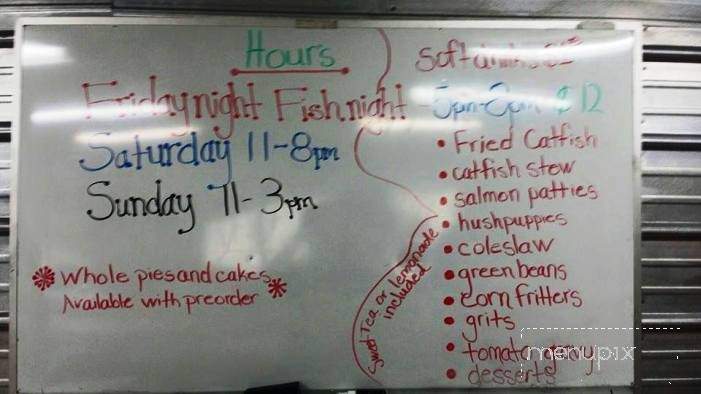 Hours
Friday night Fish night - 5pm-8pm $12
Saturday 11-8pm
Sunday 11-3pm
* Whole pies and cakes *
Available with preorder
• Fried Catfish
• catfish stew
• salmon patties
• hushpuppies
• coleslaw
• green beans
• corn fritters
• grits
• tomato gravy
• desserts
Sweet Tea or lemonade
included
menupix